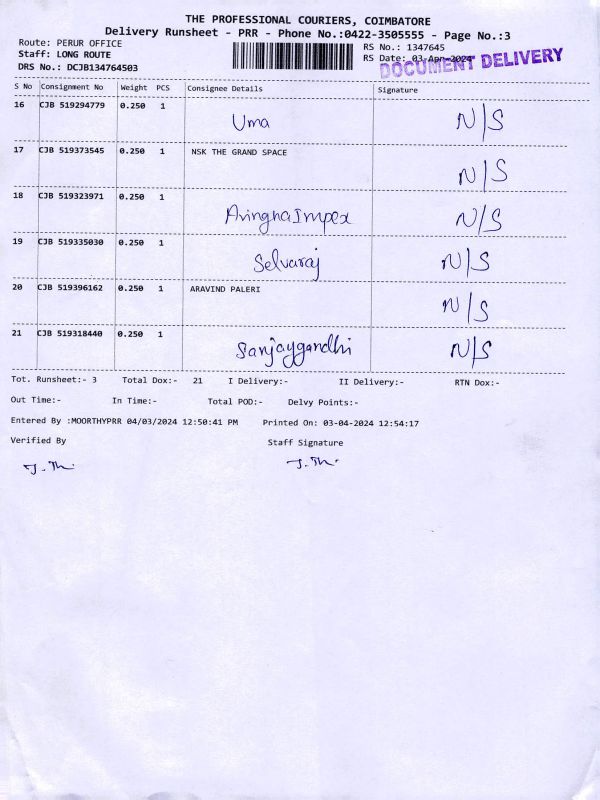 THE PROFESSIONAL COURIERS, COIMBATORE
Delivery Runsheet - PRR - Phone No.:0422-3505555 - Page No.:3
Route: PERUR OFFICE RS No.: 1347645
Staff: LONG ROUTE RS Date: 03-Apr-2024
DRS No.: DCJB134764503 DOCUMENT DELIVERY
S No Consignment No Weight PCS Consignee Details Signature
16 CJB 519294779 0.250 1 Uma N/S
17 CJB 519373545 0.250 1 NSK THE GRAND SPACE N/S
18 CJB 519323971 0.250 1 AringnaImpex N/S
19 CJB 519335030 0.250 1 Selvaraj N/S
20 CJB 519396162 0.250 1 ARAVIND PALERI N/S
21 CJB 519318440 0.250 1 Sanjaygandhi N/S
Tot. Runsheet:- 3 Total Dox:- 21 I Delivery:- II Delivery:- RTN Dox:-
Out Time:- In Time:- Total POD:- Delvy Points:-
Entered By :MOORTHYPRR 04/03/2024 12:50:41 PM Printed On: 03-04-2024 12:54:17
Verified By Staff Signature